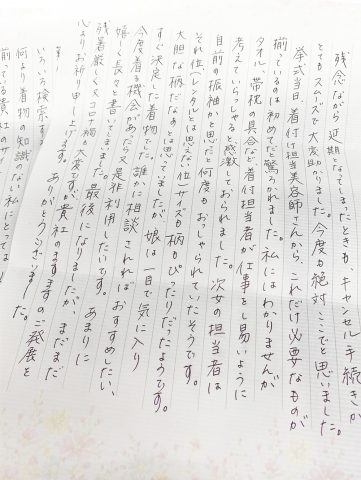 残念ながら延期となってしまったときもキャンセル手続きが
とてもスムーズで大変助かりました。今度も絶対ここでと思いました。
挙式当日、着付け担当美容師さんから、これだけ必要なものが
揃っているのは初めてだと驚かれました。私にはわかりませんが
タオル、帯枕の具合など着付担当者が仕事をし易いように
考えていらっしゃると感激しておられました。次女の担当者は
自前の振袖かと思だと何度もおっしゃられていたそうです。
それ位(レンタルとは思えない位)サイズも柄もぴったりだったようです。
大胆な柄だなぁとは思っていましたが、娘は一目で気に入り
すぐ決定した着物でした。誰かに相談されればおすすめしたい、
今度着る機会があったら又是非利用したいです。あまりに
嬉しく長々と書いてしまいました。最後になりましたが、まだまだ
残暑厳しく又コロナ禍も大変ですが、貴社のますますのご発展を
心よりお祈り申し上げます。ありがとうございました。
いろいろ検索す
何より着物の知識のない私にとっては
揃っている貴社のサ